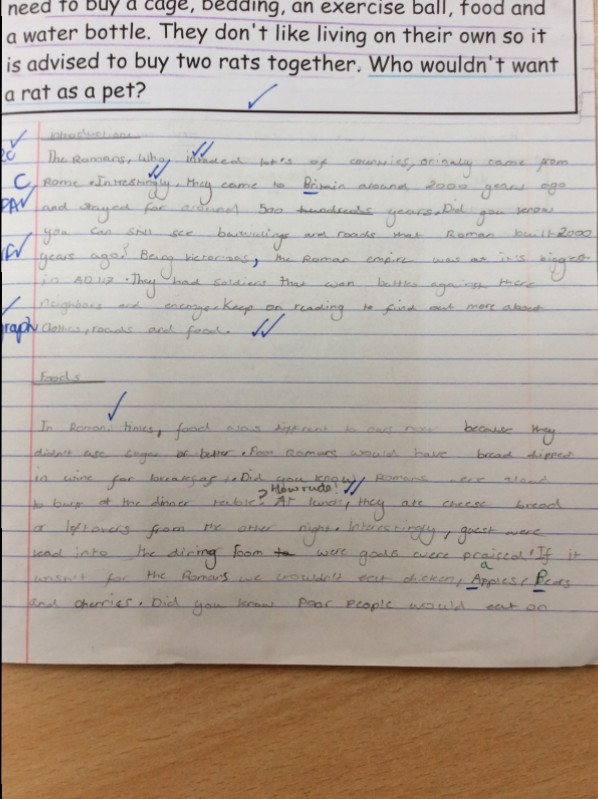 need to buy a cage, bedding, an exercise ball, food and
a water bottle. They don't like living on their own so it
is advised to buy two rats together. Who wouldn't want
a rat as a pet?
introduction
The Romans, who, invaded lot's of countries, orinaly came from
C, Rome. Intrestingly, they came to Britain around 2000 years ago
PA and stayed for around 500 hundreds years. Did you know
you can still see and roads that Roman built 2000
years ago? Being victorious, the Roman empire was at it's biggest
in AD117. They had soldiers that won battles against there
Neighbors and enemys. Keep on reading to find out more about
raph clothes, roads and food.
Foods
In Roman times, food was different to ours now because they
didn't use sugar or butter. Poor Romans would have bread dipped
in wine for breakfast. Did you know, Romans were
to burp at the dinner table? How rude! At lunch, they ate cheese bread
or leftovers from the other night. Interestingly, guest were
lead into the dining room to were gods were praised. If it
wasn't for the Romans we wouldn't eat chicken, Apples, a Peas
and cherries. Did you know Poor People would eat on